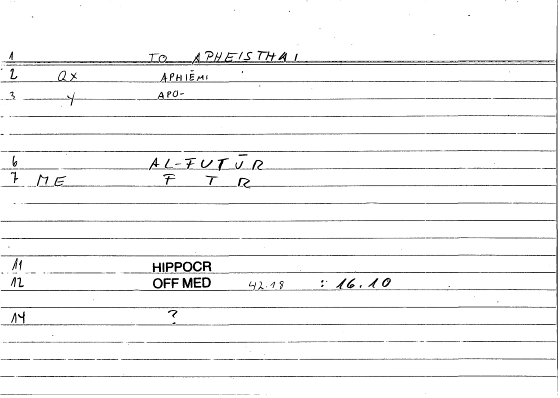 1 TO APHEISTHAI
2 QX APHIĒMI
3 Y APO-
6 AL-FUTŪR
7 ME F T R
11 HIPPOCR
12 OFF MED 42.18 : 16.10
14 ?